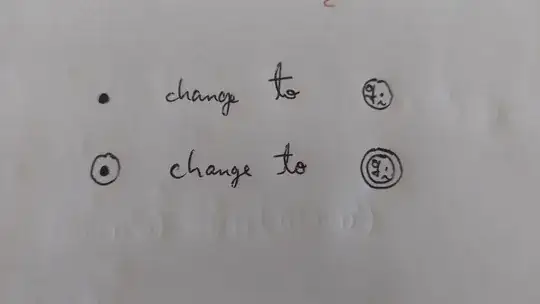 • change to qi
change to qi